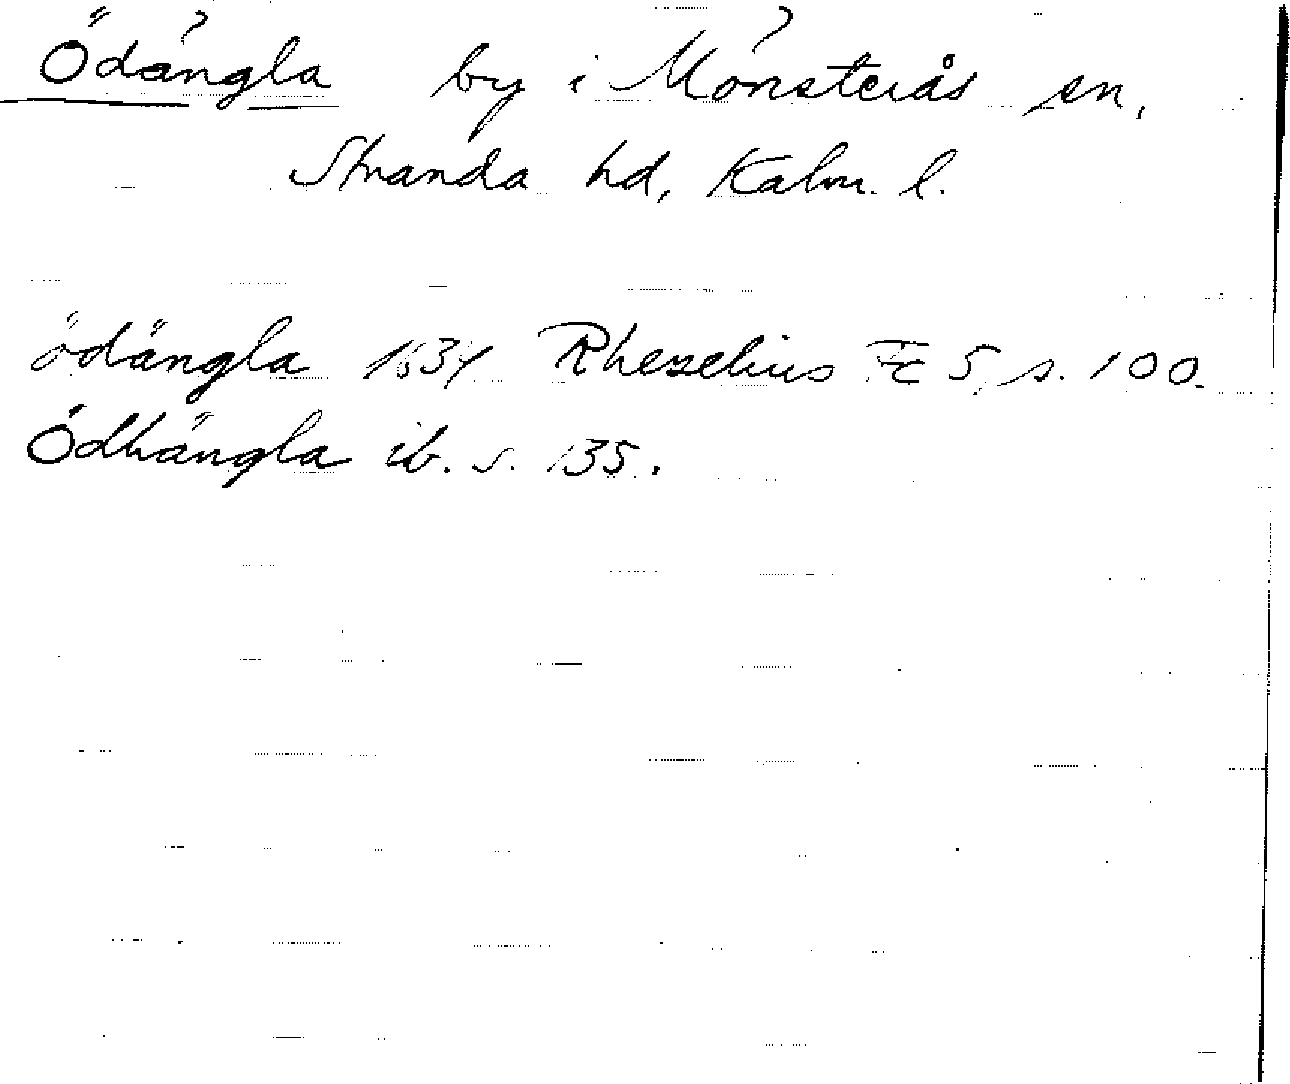 Ödängla by i Mönsterås sn,
Stranda hd, Kalm. l.
ödängla 1634 Rhezelius FE 5, s. 100.
Ödhängla ib. s. 135.